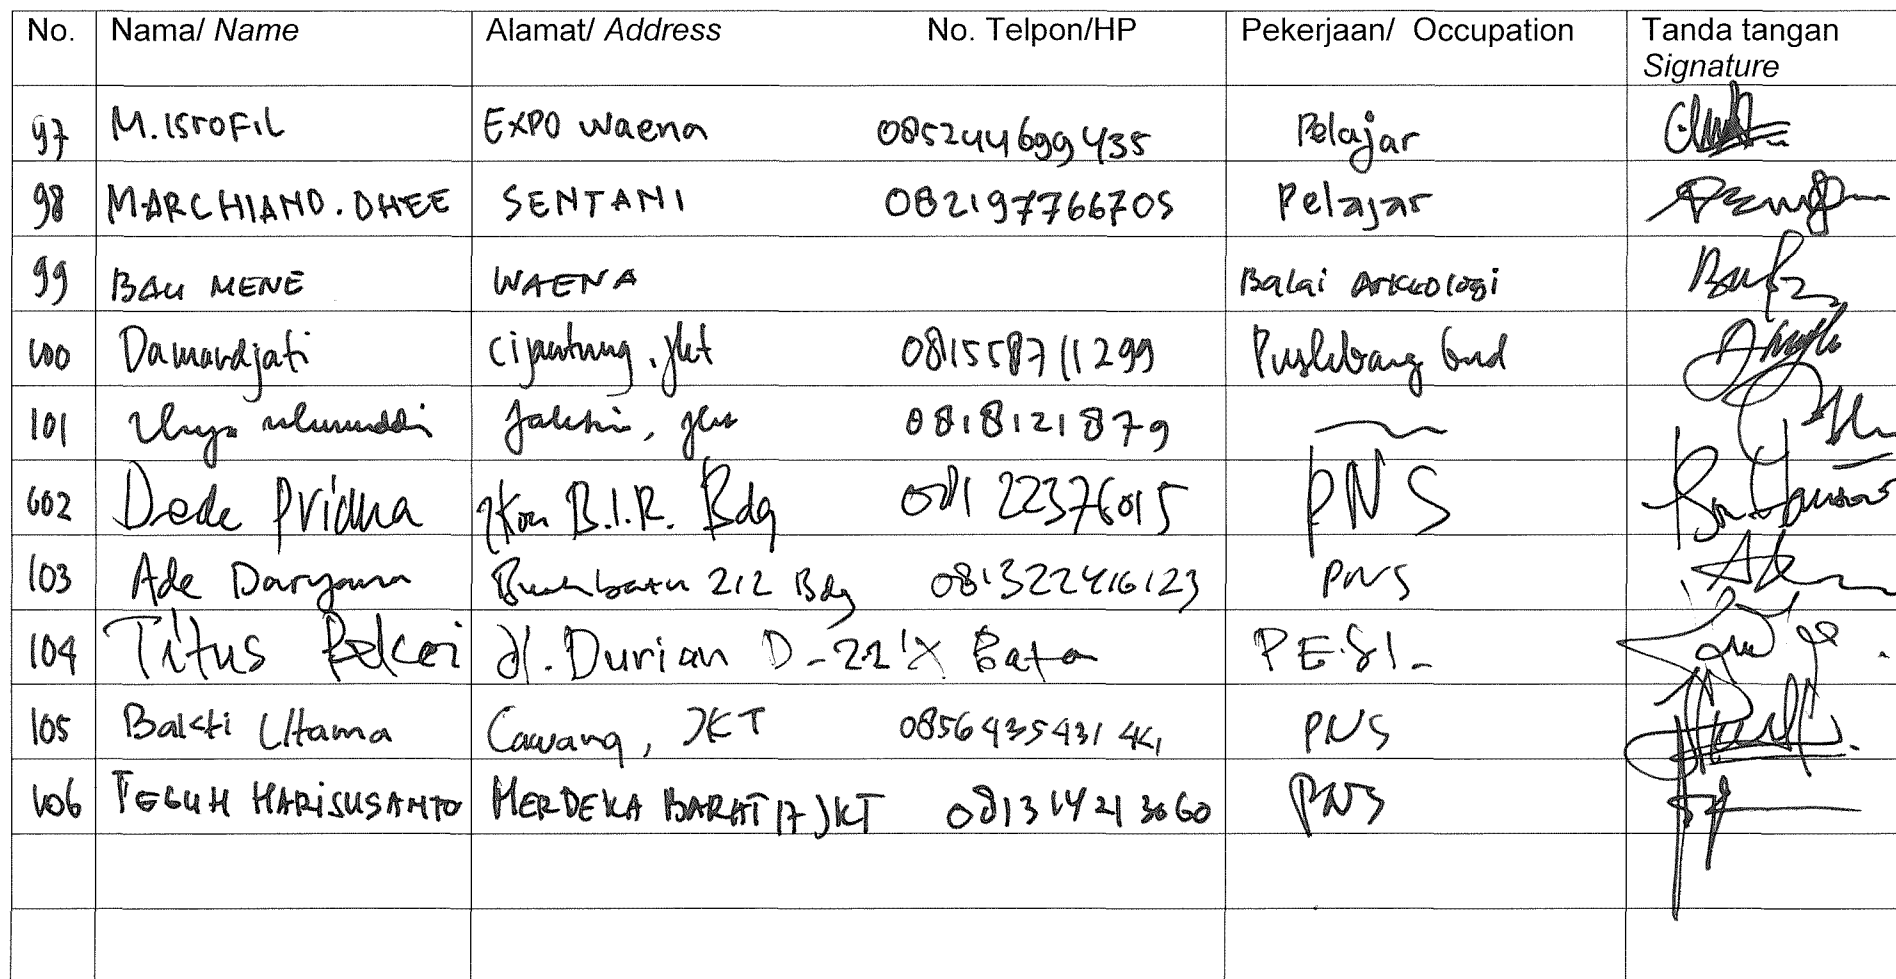 No. Nama/ Name Alamat/ Address No. Telpon/HP Pekerjaan/ Occupation Tanda tangan
Signature
97 M. ISROFIL EXPO Waena 085244699435 Pelajar
98 MARCHIANO. DHEE SENTANI 082197766705 Pelajar
99 BAU MENE WAENA Balai Arkeologi
100 Damardjati jkt 081558711299
101 0818121879
102 Dede Pridna B.I.R. Bdg 08122376015 PNS
103 Ade Daryana 212 Bdg 081322416123 PNS
104 Titus Jl. Durian D-22
105 Bakti Utama Cawang, JKT PNS
106 TEGUH HARISUSANTO MERDEKA BARAT 17 JKT 081314213060 PNS